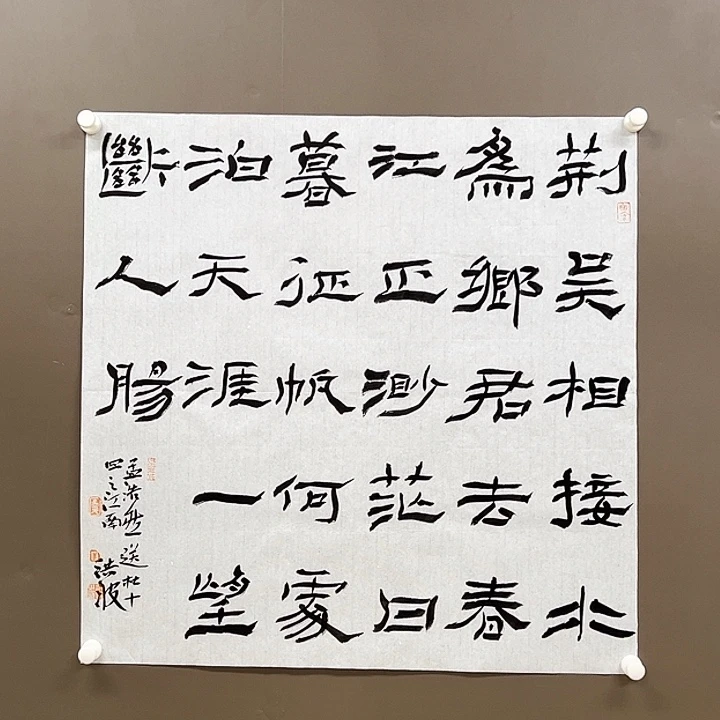 荆吳相接水
為鄉君去春
江正渺茫日
暮征帆何處
泊天涯一望
斷人腸
孟浩然送杜十
四之江南 洪波